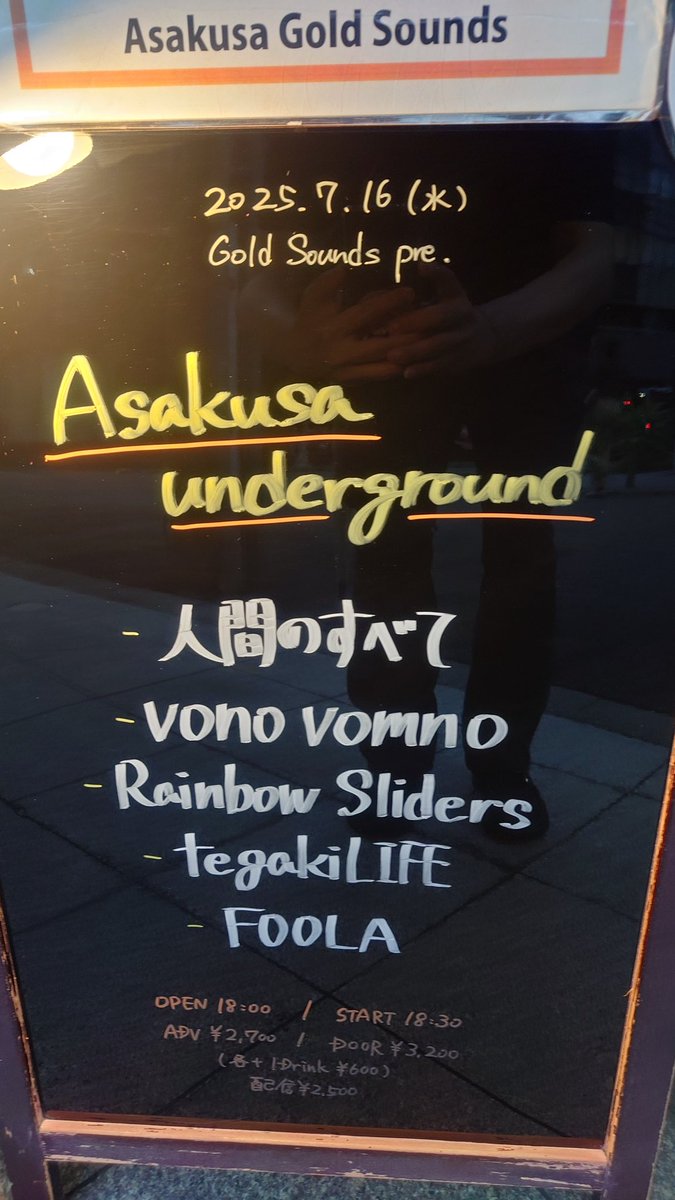 Asakusa Gold Sounds
2025.7.16(水)
Gold Sounds pre.
Asakusa
underground
- 人間のすべて
- vono vomno
- Rainbow Sliders
- tegakiLIFE
- FOOLA
OPEN 18:00 / START 18:30
ADV ¥2,700 / DOOR ¥3,200
(各+1Drink ¥600)
配信¥2,500